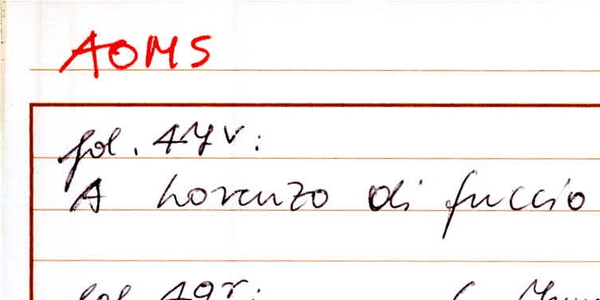 AOMS
fol. 47v:
A Lorenzo di fuccio
fol. 49r: